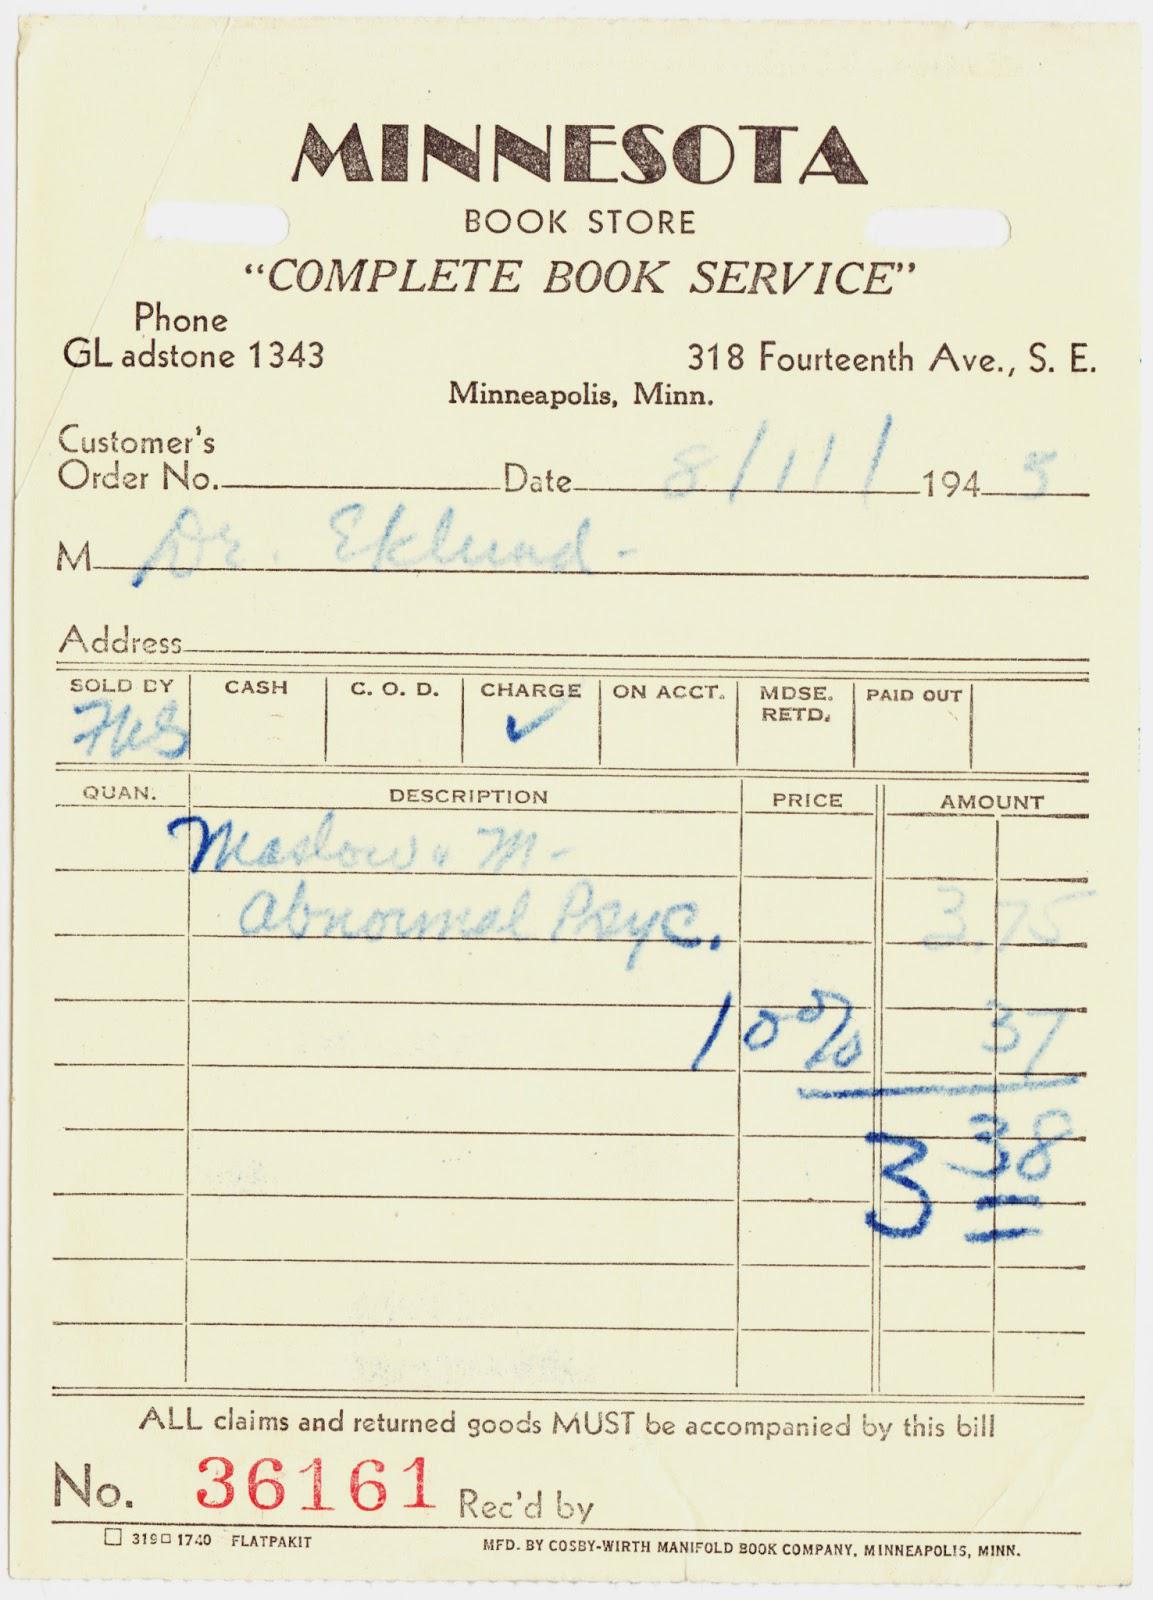 MINNESOTA
BOOK STORE
“COMPLETE BOOK SERVICE”
Phone
GLadstone 1343
318 Fourteenth Ave., S. E.
Minneapolis, Minn.
Customer's
Order No. Date 8/11/ 1943
M Dr. Eklund -
Address
SOLD BY CASH C. O. D. CHARGE ON ACCT. MDSE. RETD. PAID OUT
✓
QUAN. DESCRIPTION PRICE AMOUNT
Maslow " M -
Abnormal Psyc. 3.75
10% 37
3 38
ALL claims and returned goods MUST be accompanied by this bill
No. 36161 Rec'd by
319 1740 FLATPAKIT MFD. BY COSBY-WIRTH MANIFOLD BOOK COMPANY, MINNEAPOLIS, MINN.